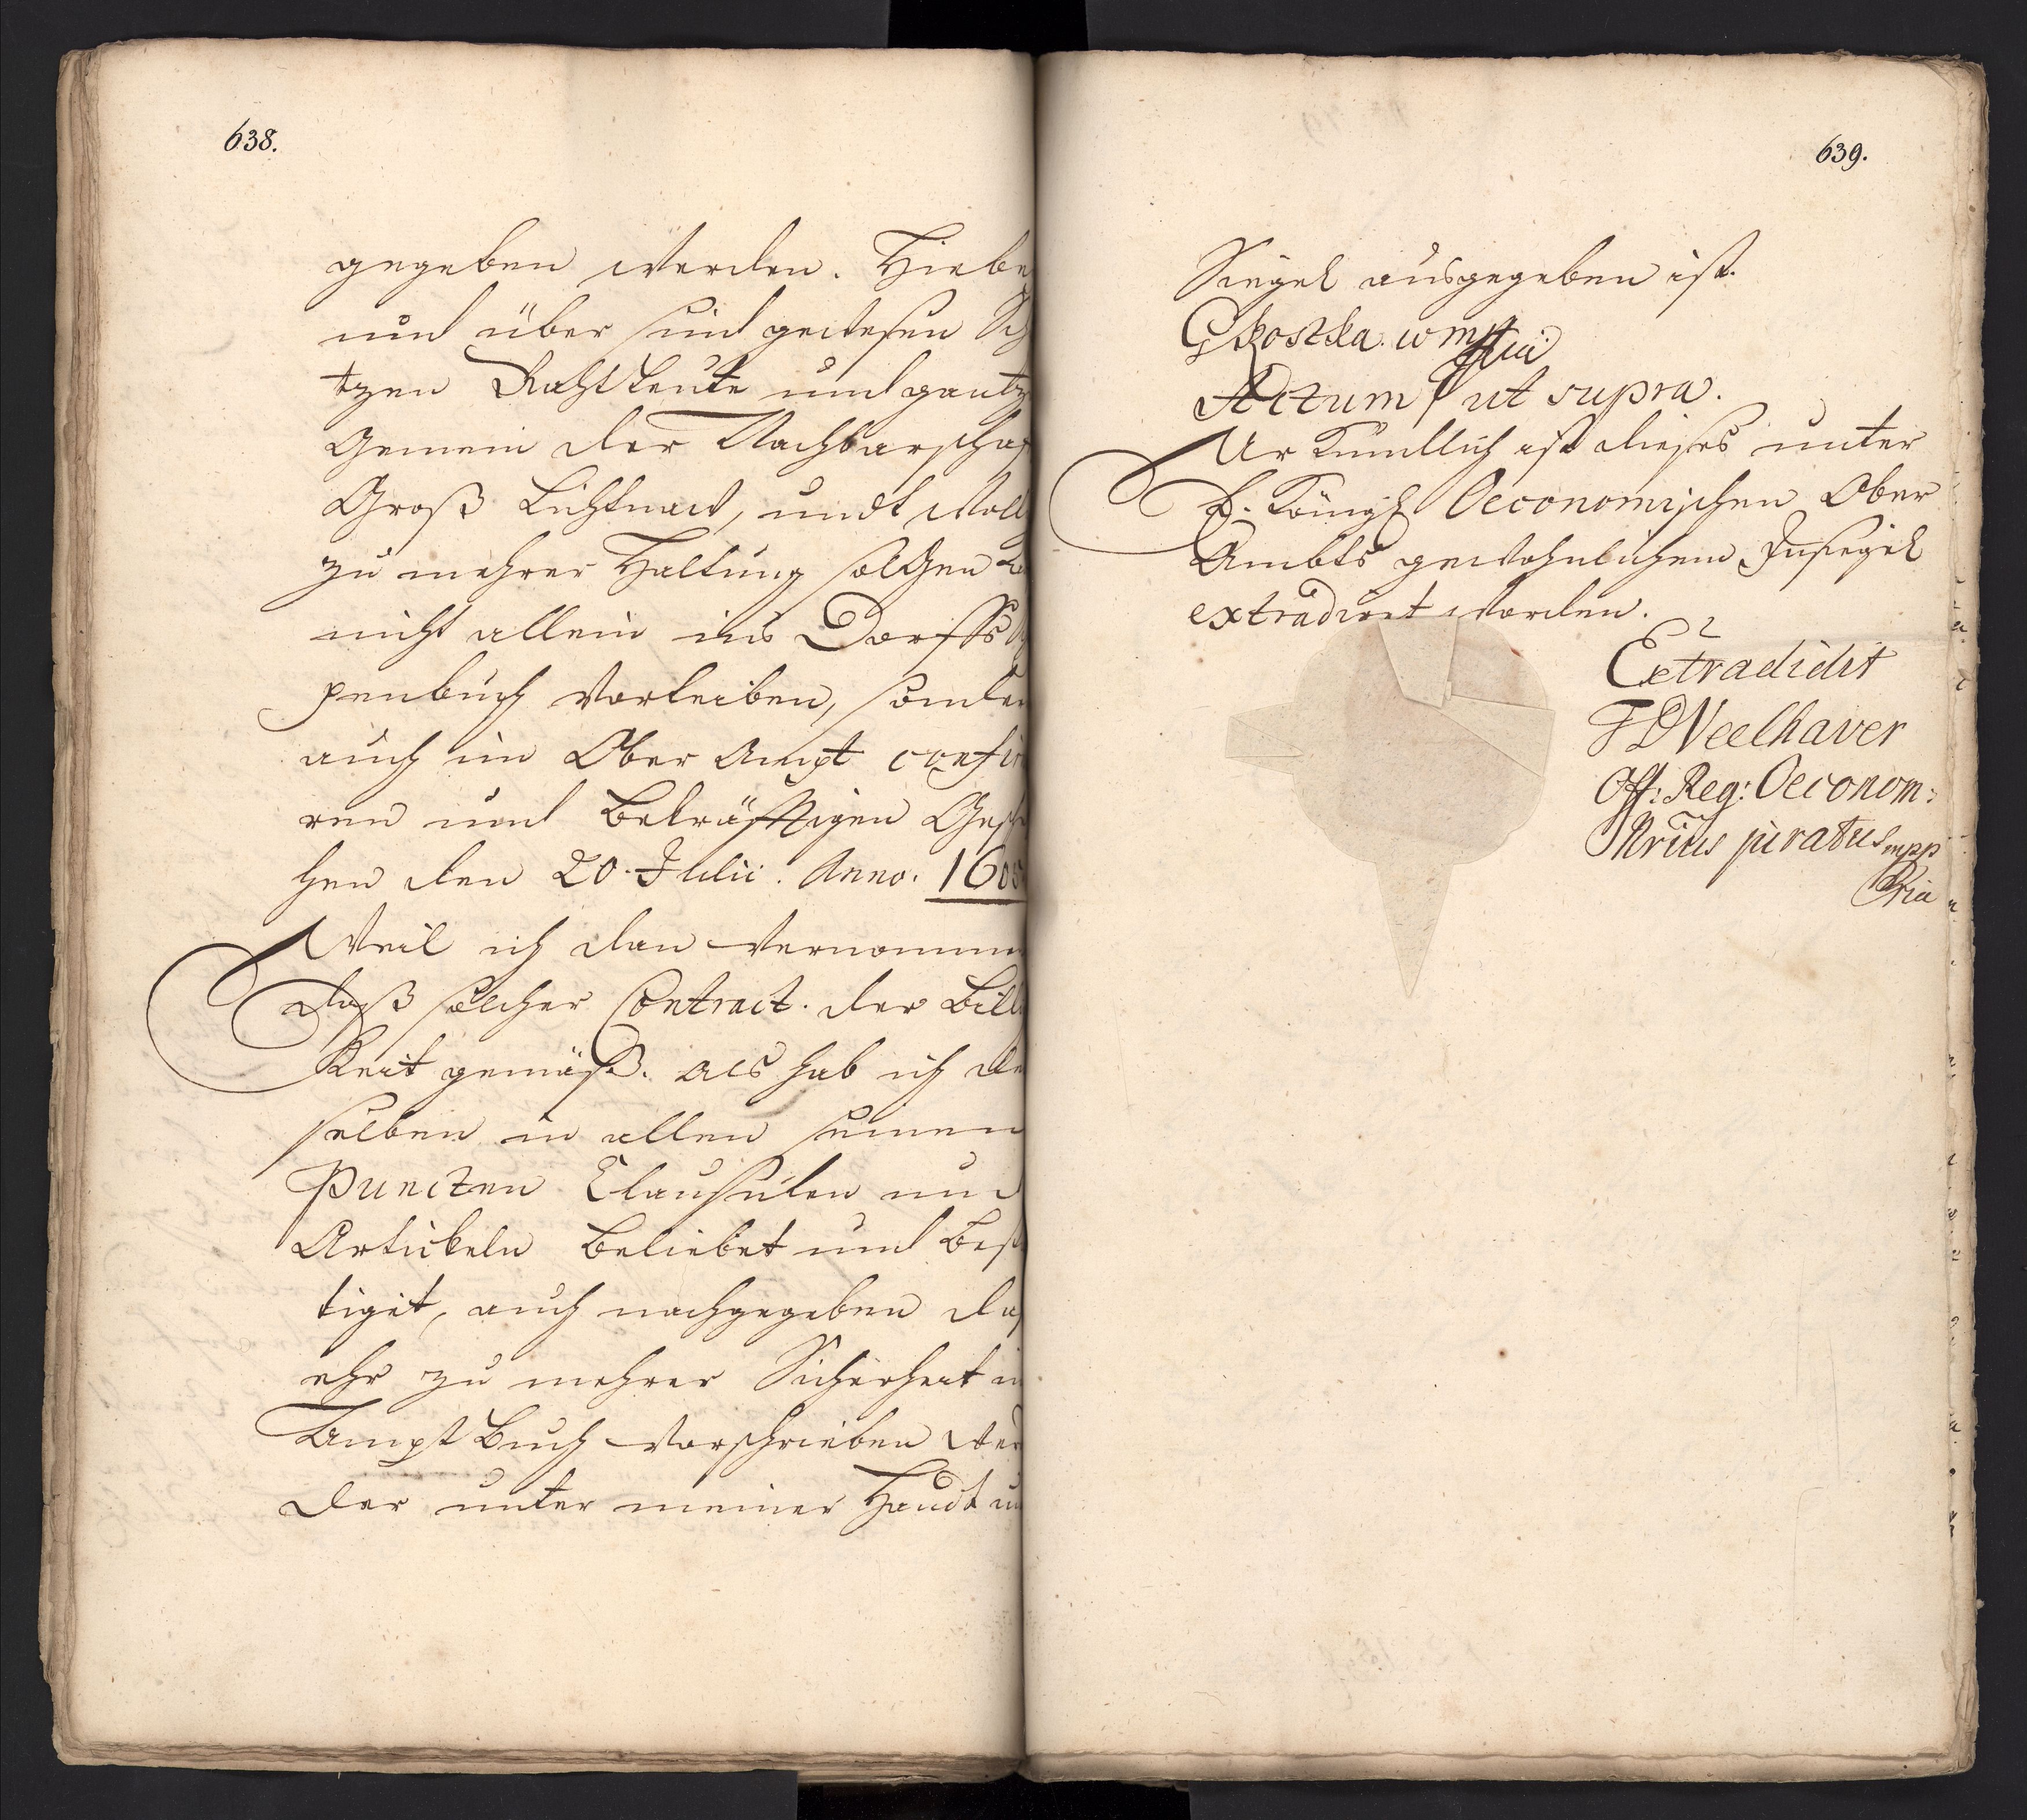 638.
gegeben werden. Hiebe
und über sind gewesen Sch
tzen Rahtleute und gantz
Gemein der Nachbarschaf
Groß Lichtnaw, undt woll
zu mehrer Haltung solchen
nicht allein ins Dorffs
penbuch vorleiben, sonder
auch im Ober Ampt confir
ren und bekräfftigen Gesch
hen den 20. Julii. Anno. 1605
Weil ich dan vernommen
daß solcher Contract. der Bill
Keit gemäß. als hab ich de
selben in allen seinen
Puncten Clausulen und
Artickeln beliebet und best
tiget, auch nachgegeben daß
ehr zu mehrer Sicherheit in
Ampt Buch vorschrieben wer
der unter meiner Handt un
639.
Siegel ausgegeben ist.
G Kostka. w mpp
Actum ut supra.
Uhr Kundlich ist dieses unter
E. Königl Oeconomischen Ober
Ambts gewohnlichem Insiegel
extradiret worden.
Extradidit
F D Veelhaver
Off: Reg: Oeconom:
Nrius juratus mpp
Pria